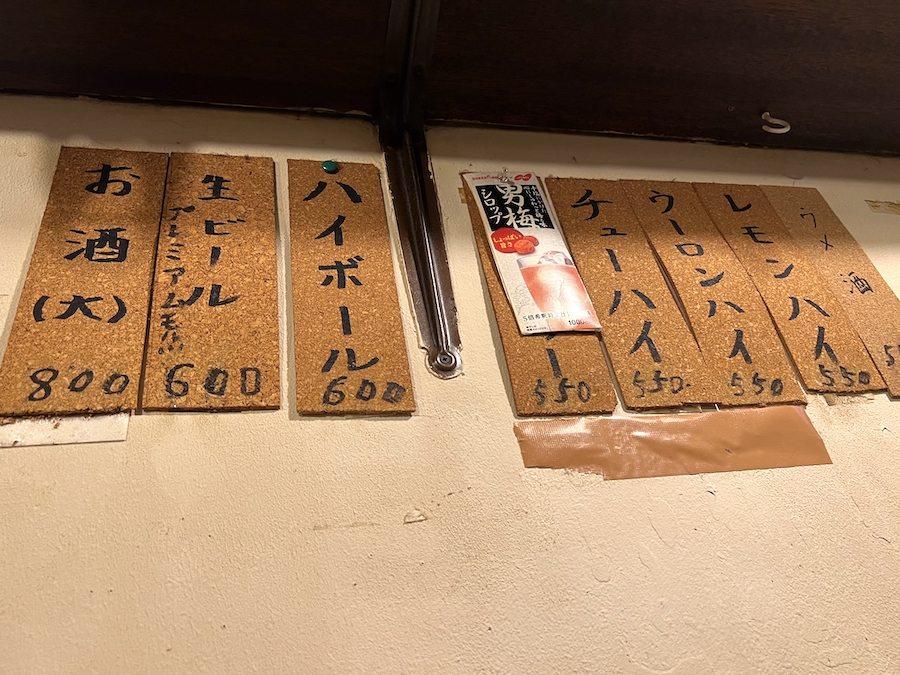 お酒(大)
800
生ビール
プレミアムモルツ
600
ハイボール
600
男梅
シロップ
しょっぱい
旨さ
5倍希釈
ー
550
チューハイ
550
ウーロンハイ
550
レモンハイ
550
ウメ酒